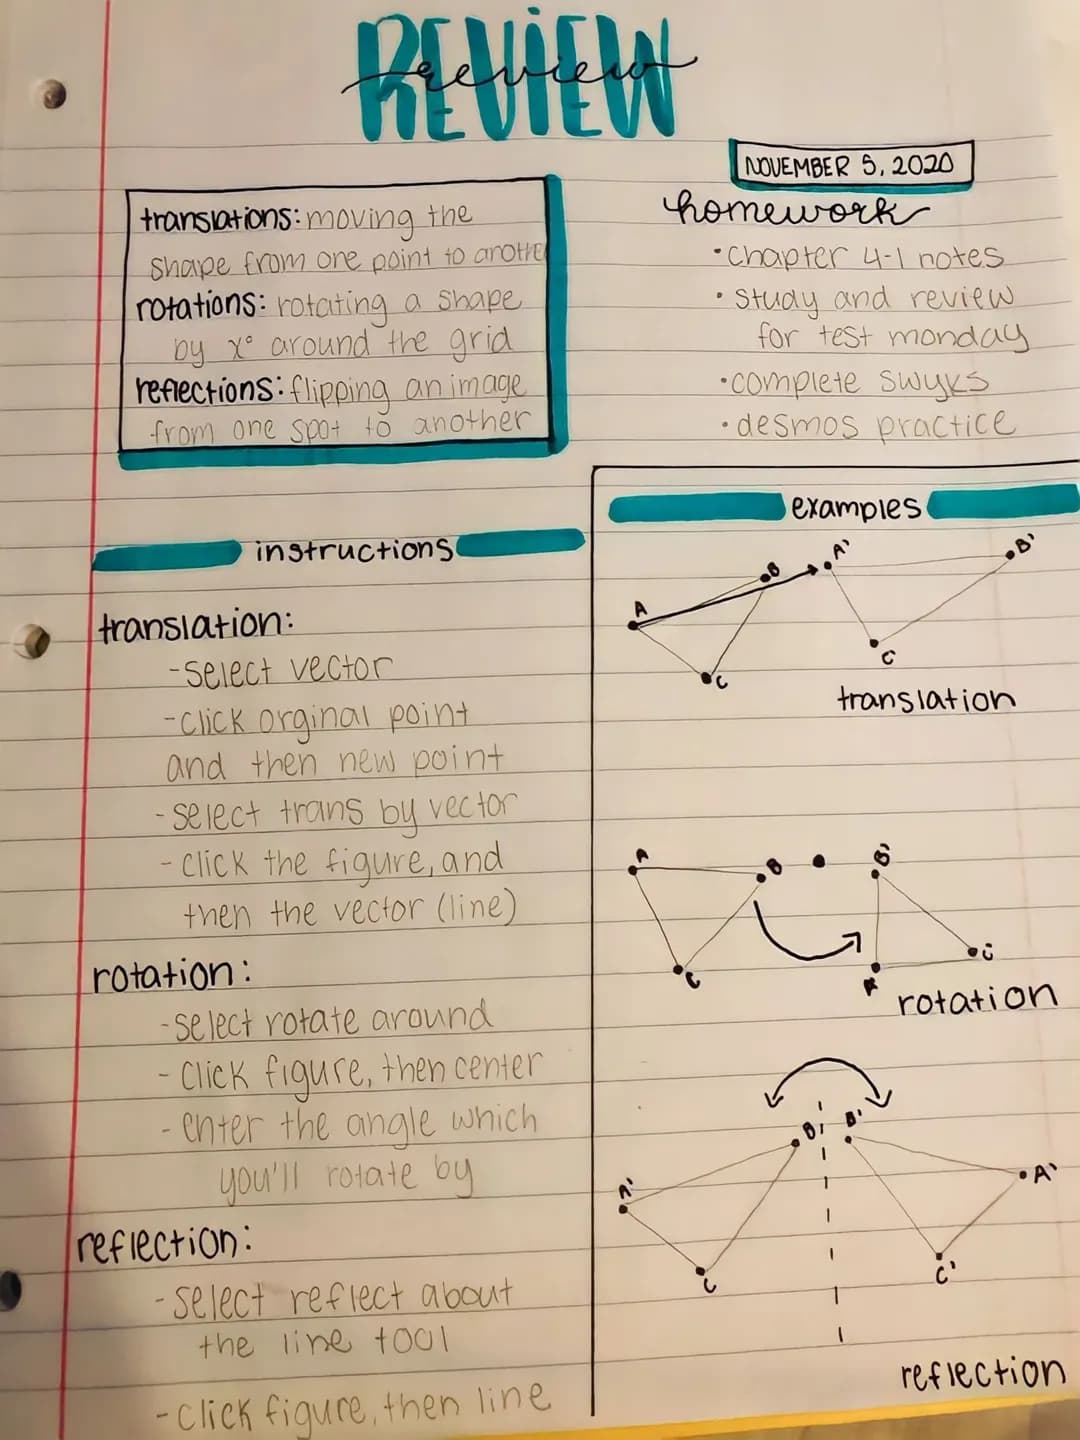 REVIEW
review
NOVEMBER 5, 2020
translations: moving the
shape from one point to another
rotations: rotating a shape
by x° around the grid
reflections: flipping an image
from one spot to another
homework
• chapter 4-1 notes
• study and review
for test monday
• complete swyks
• desmos practice
instructions
translation:
- select vector
- click orginal point
and then new point
- select trans by vector
- click the figure, and
then the vector (line)
rotation:
- select rotate around
- click figure, then center
- enter the angle which
you'll rotate by
reflection:
- select reflect about
the line tool
- click figure, then line
examples
A B C A' B' C
translation
A B C B' C
rotation
A' B C B' A' C'
reflection